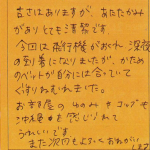 古さはありますが、あたたかみ
がありとても清潔です
今回は飛行機がおくれ深夜
の到着になりましたが、かため
のベットが自分には合っていて
ぐっすりねむれました。
お部屋の
沖縄 を感じられて
うれしいです。
また次回もよろしくおねがい
します